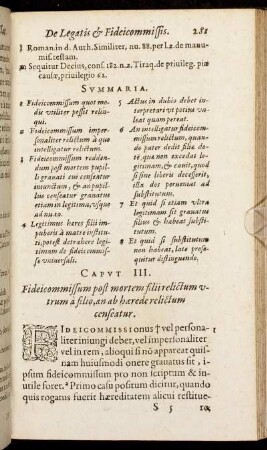 De Legatis & Fideicommissis. 281
l Roman. in d. Auth. Similiter, nu. 88. per l. 2. de manu-
mis. testam.
m Sequitur Decius, cons. 182. n. 2. Tiraq. de priuileg. piæ
causæ, priuilegio 62.
SVMMARIA.
1 Fideicommissum quot mo-
dis vtiliter possit relin-
qui.
2 Fideicommissum imper-
sonaliter relictum à quo
intelligatur relictum.
3 Fideicommissum redden-
dum post mortem pupil-
li grauati cui censeatur
iniunctum, & an pupil-
lus censeatur grauatus
etiam in legitima, vsque
ad nu. 6.
4 Legitimus heres filii im-
puberis à matre institu-
ti, potest detrahere legi-
timam de fideicommis-
se vniuersali.
5 Actus in dubio debet in-
terpretari vt potius va-
leat quam pereat.
6 An intelligatur fideicom-
missum relictum, quan-
do pater dedit filio die-
ta qua non excedat legi-
timam, & contulit, quod
si sine liberis decesserit,
illa dos perueniat ad
substitutum.
7 Et quid si etiam vltra
legitimam sit grauatus
filius & habeat substi-
tutum.
8 Et quid si substitutum
non habeat, late prose-
quitur distinguendo.
CAPVT III.
Fideicommissum post mortem filii relictum v-
trum à filio, an ab hærede relictum
censeatur.
FIDEICOMMISSIO nus † vel persona-
liter iniungi debet, vel impersonaliter
vel in rem, alioqui si nō appareat quis-
nam huiusmodi onere grauatus sit, i-
psum fideicommissum pro non scriptum & in-
utile foret. a Primo casu positum dicitur, quando
quis rogatus fuerit hæreditatem alicui restitue-
S 5 re,